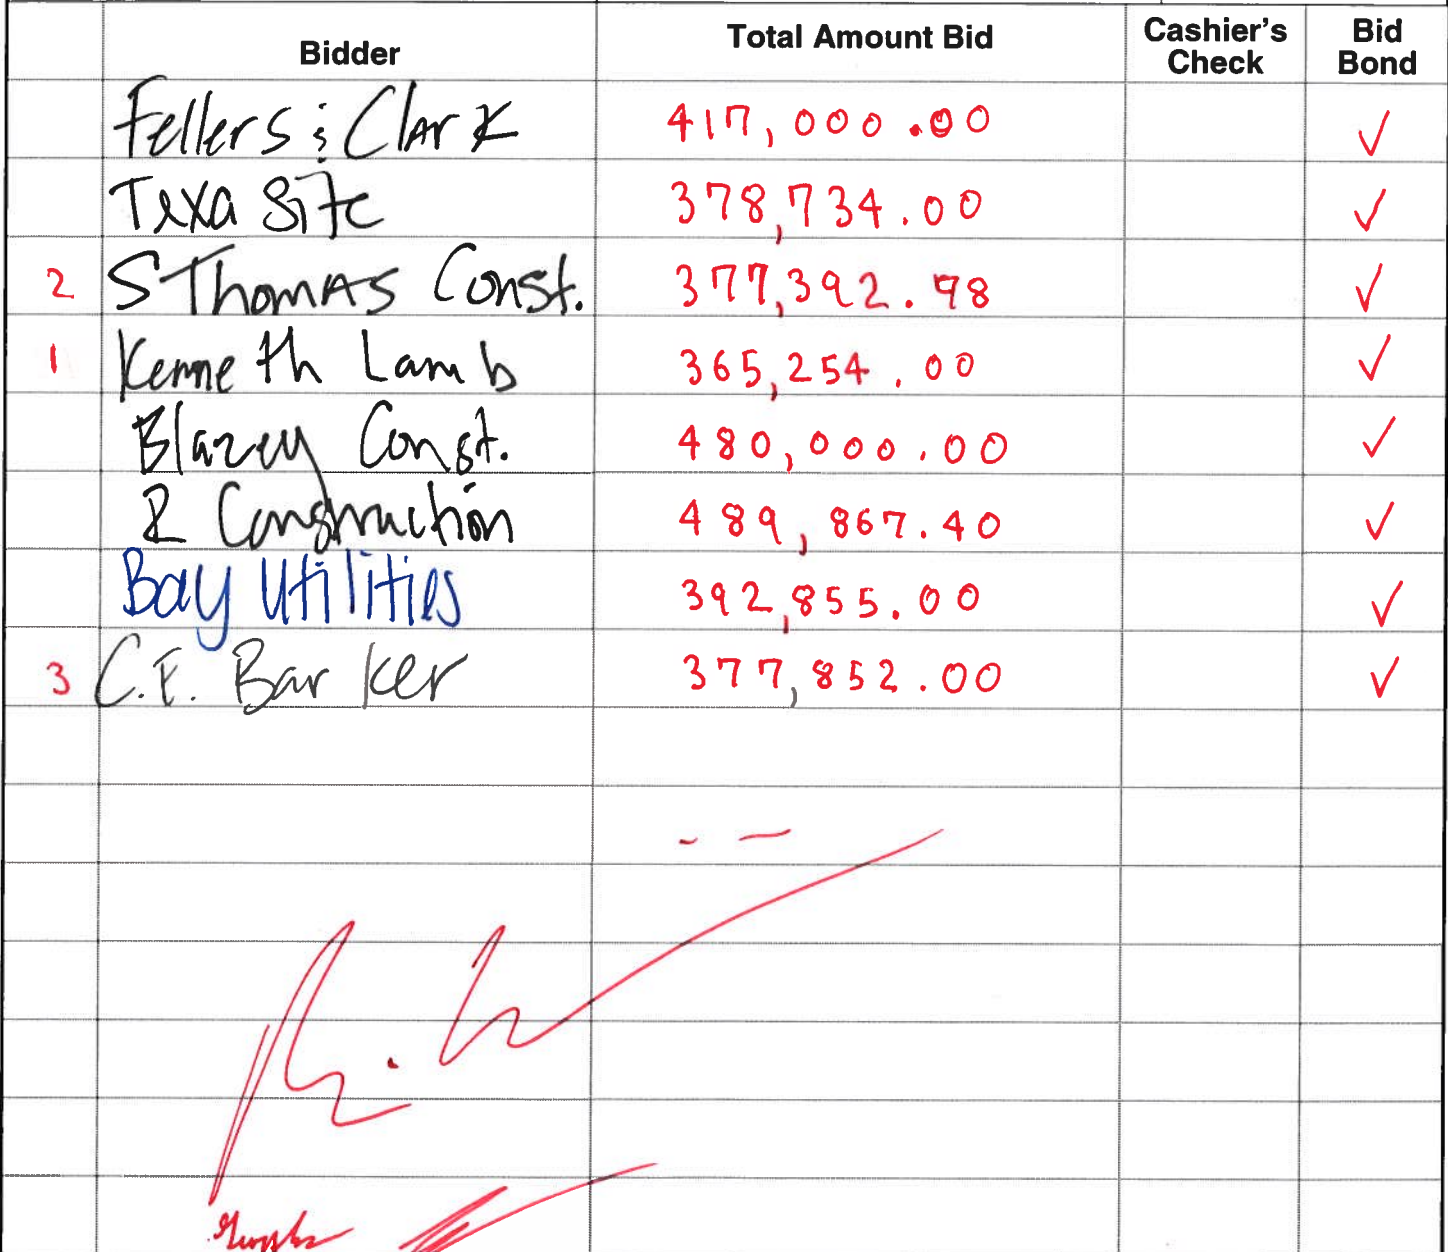 Bidder Total Amount Bid Cashier's Check Bid Bond
Fellers & Clark 417,000.00 ✓
Texa Site 378,734.00 ✓
2 SThomas Const. 377,392.98 ✓
1 Kenneth Lamb 365,254.00 ✓
Blazey Const. 480,000.00 ✓
R Construction 489,867.40 ✓
Bay Utilities 392,855.00 ✓
3 C.F. Barker 377,852.00 ✓